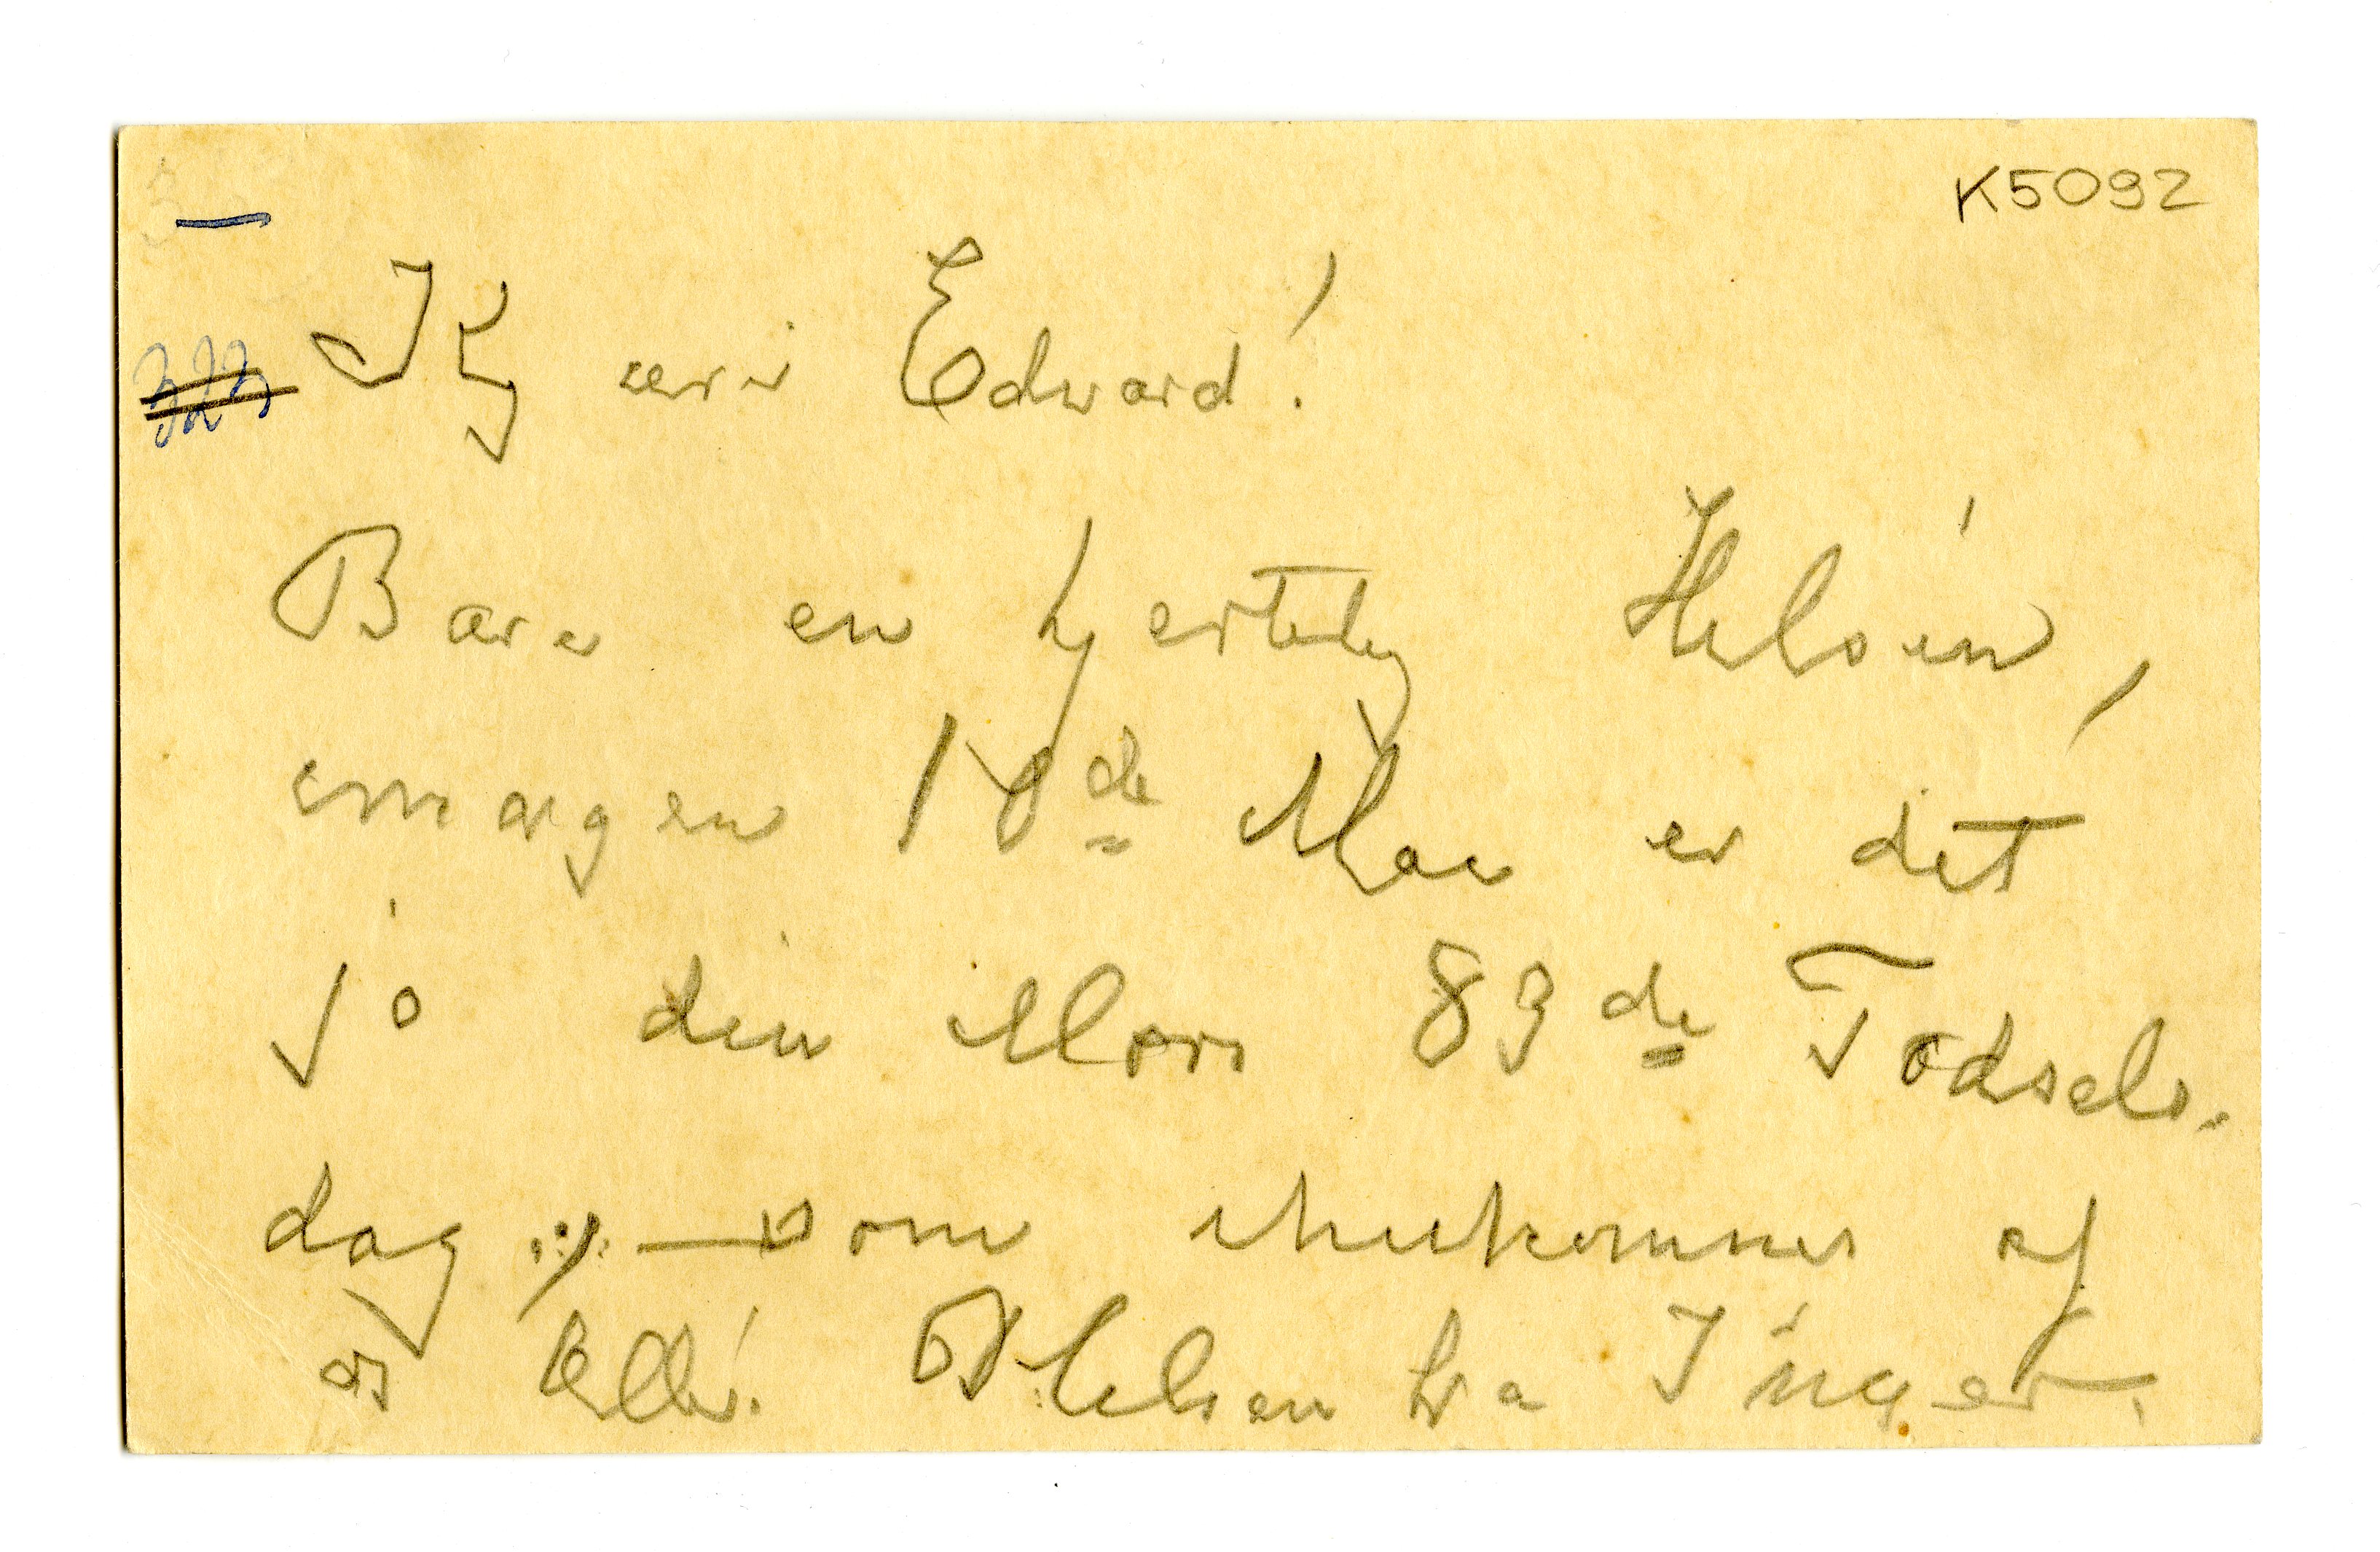 K5092
323
Kjære Edvard!
Bare en hjertelig Hilsen,
imorgen 10de Mai er det
jo din Mors 83de Fødsels-
dag :/: — som ihukommes af
os Alle! Hilsen fra Inger